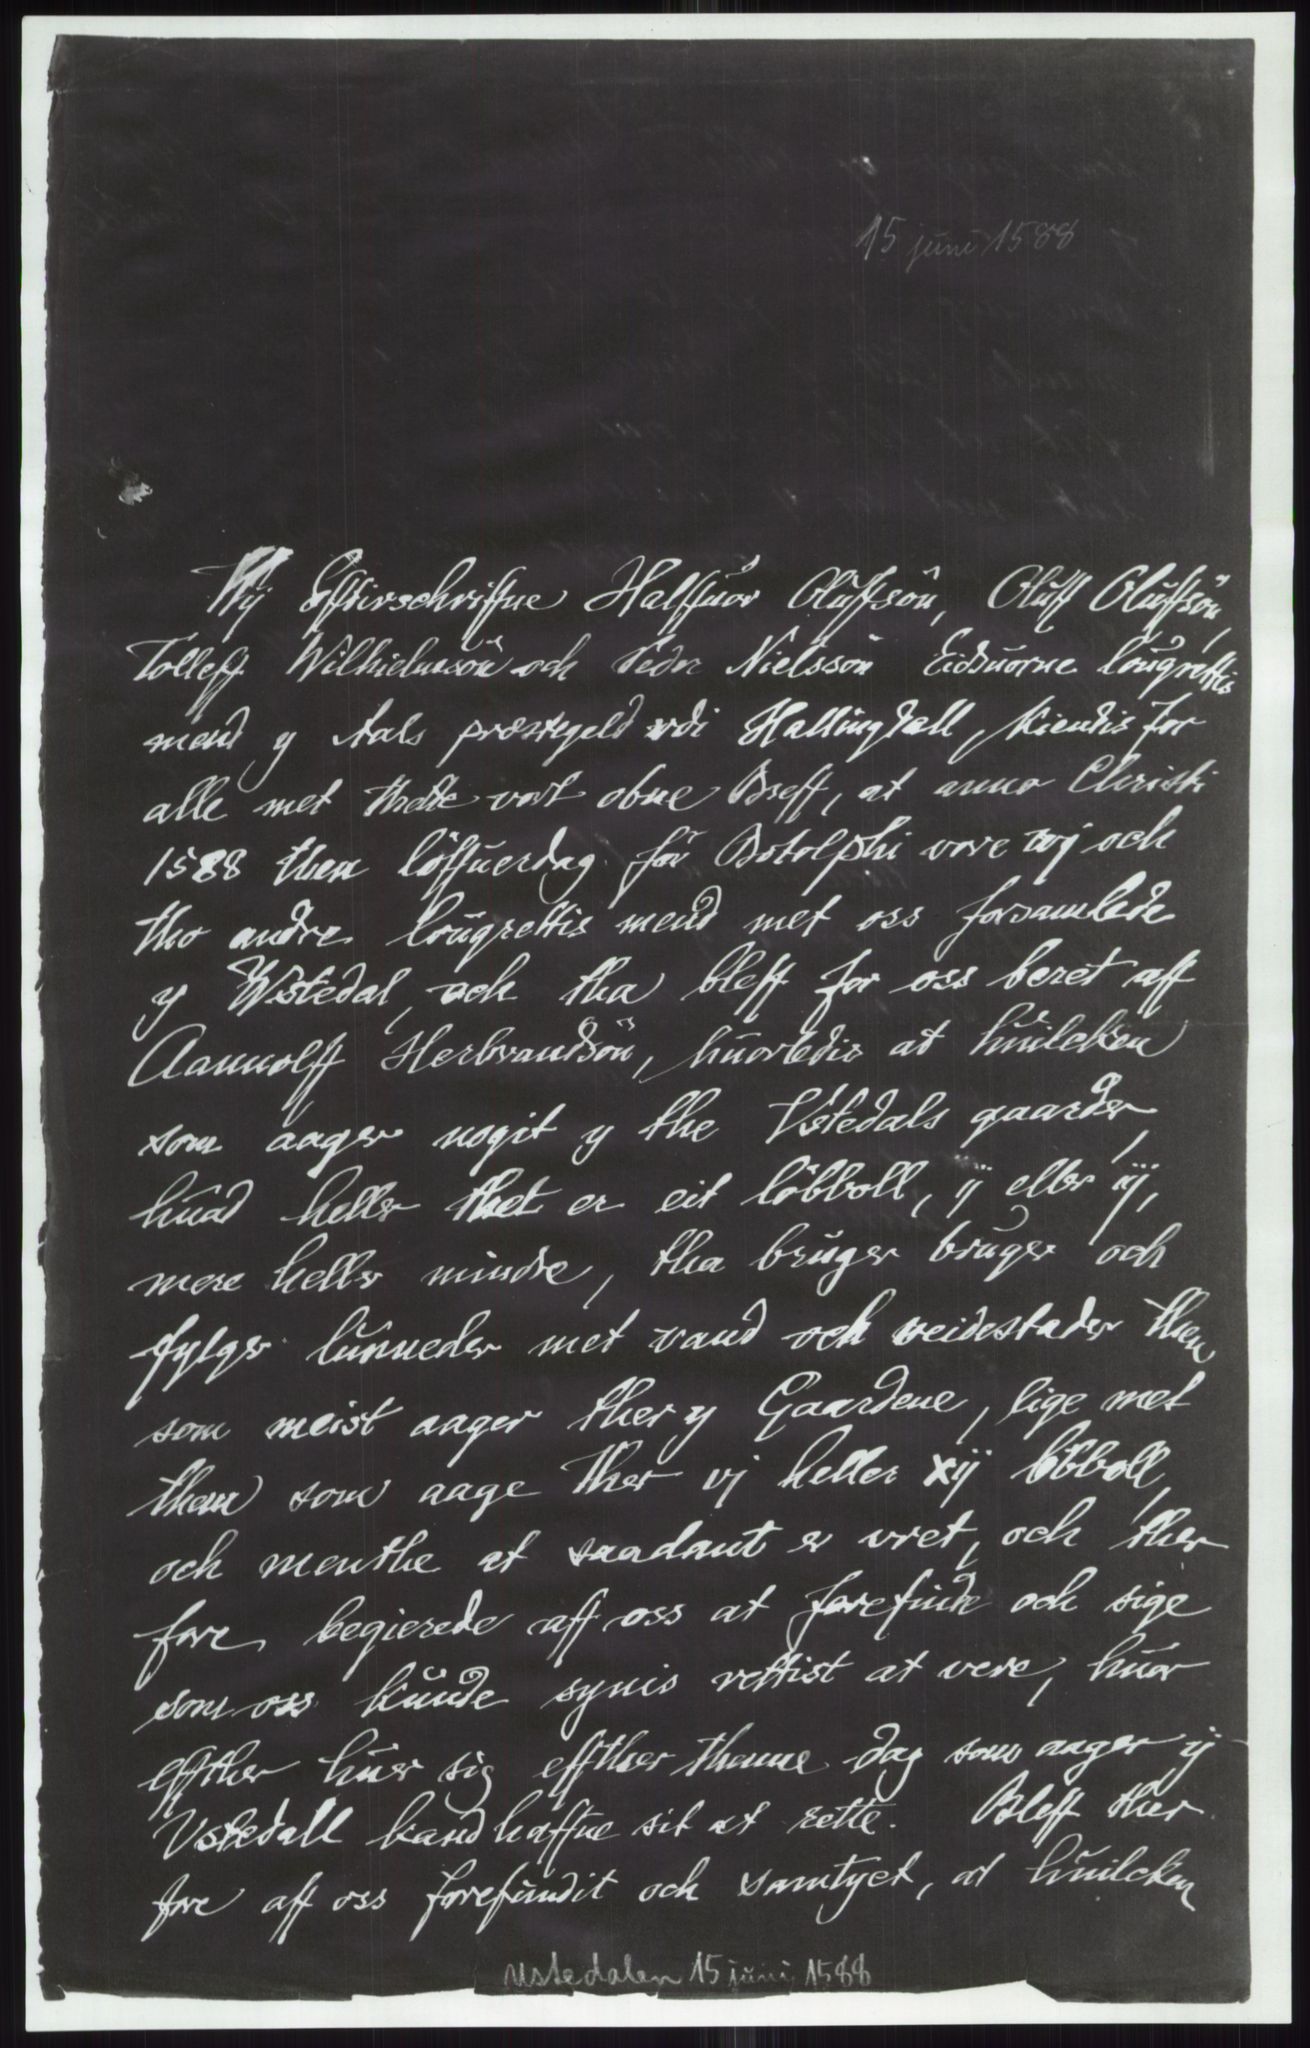 15 juni 1588
Wÿ Efftirschriffne Halffuor Oluffsön, Oluff Oluffsön,
Tolleff Wilhielmsön och Peder Nielssön Eidsuorne lougrettis
mend y Aals prestegeld vdi Hallingdall, kiendis for
alle met thette vort obne Breff, at anno Christi
1588 then löffuerdag för Botolphi vore wj och
tho andre lougrettis mend met oss forsamlede
y Wstedal, och tha bleff for oss beret aff
Aamulff Herbrandsön, huorledis at huilcken
som aager nogit y the Vstedals gaarder,
huad heller thet er eit löbboll, ij eller iij,
mere heller mindre, tha bruger bruger och
fylger lunneder met vand och veidestader them
som meist aager ther y Gaardene, lige met
them som aage ther vj heller xij löbboll,
och menthe at saadant er vret, och ther
fore begierede aff oss at forefinde och sige
som oss kunde synis rettist at vere, huor
effther huer sig effther thenne dag som aager ÿ
Vstedall kand haffue sit at rette. Bleff ther
fore aff oss forefundit och samtyct, at huilcken
Ustedalen 15 juni 1588